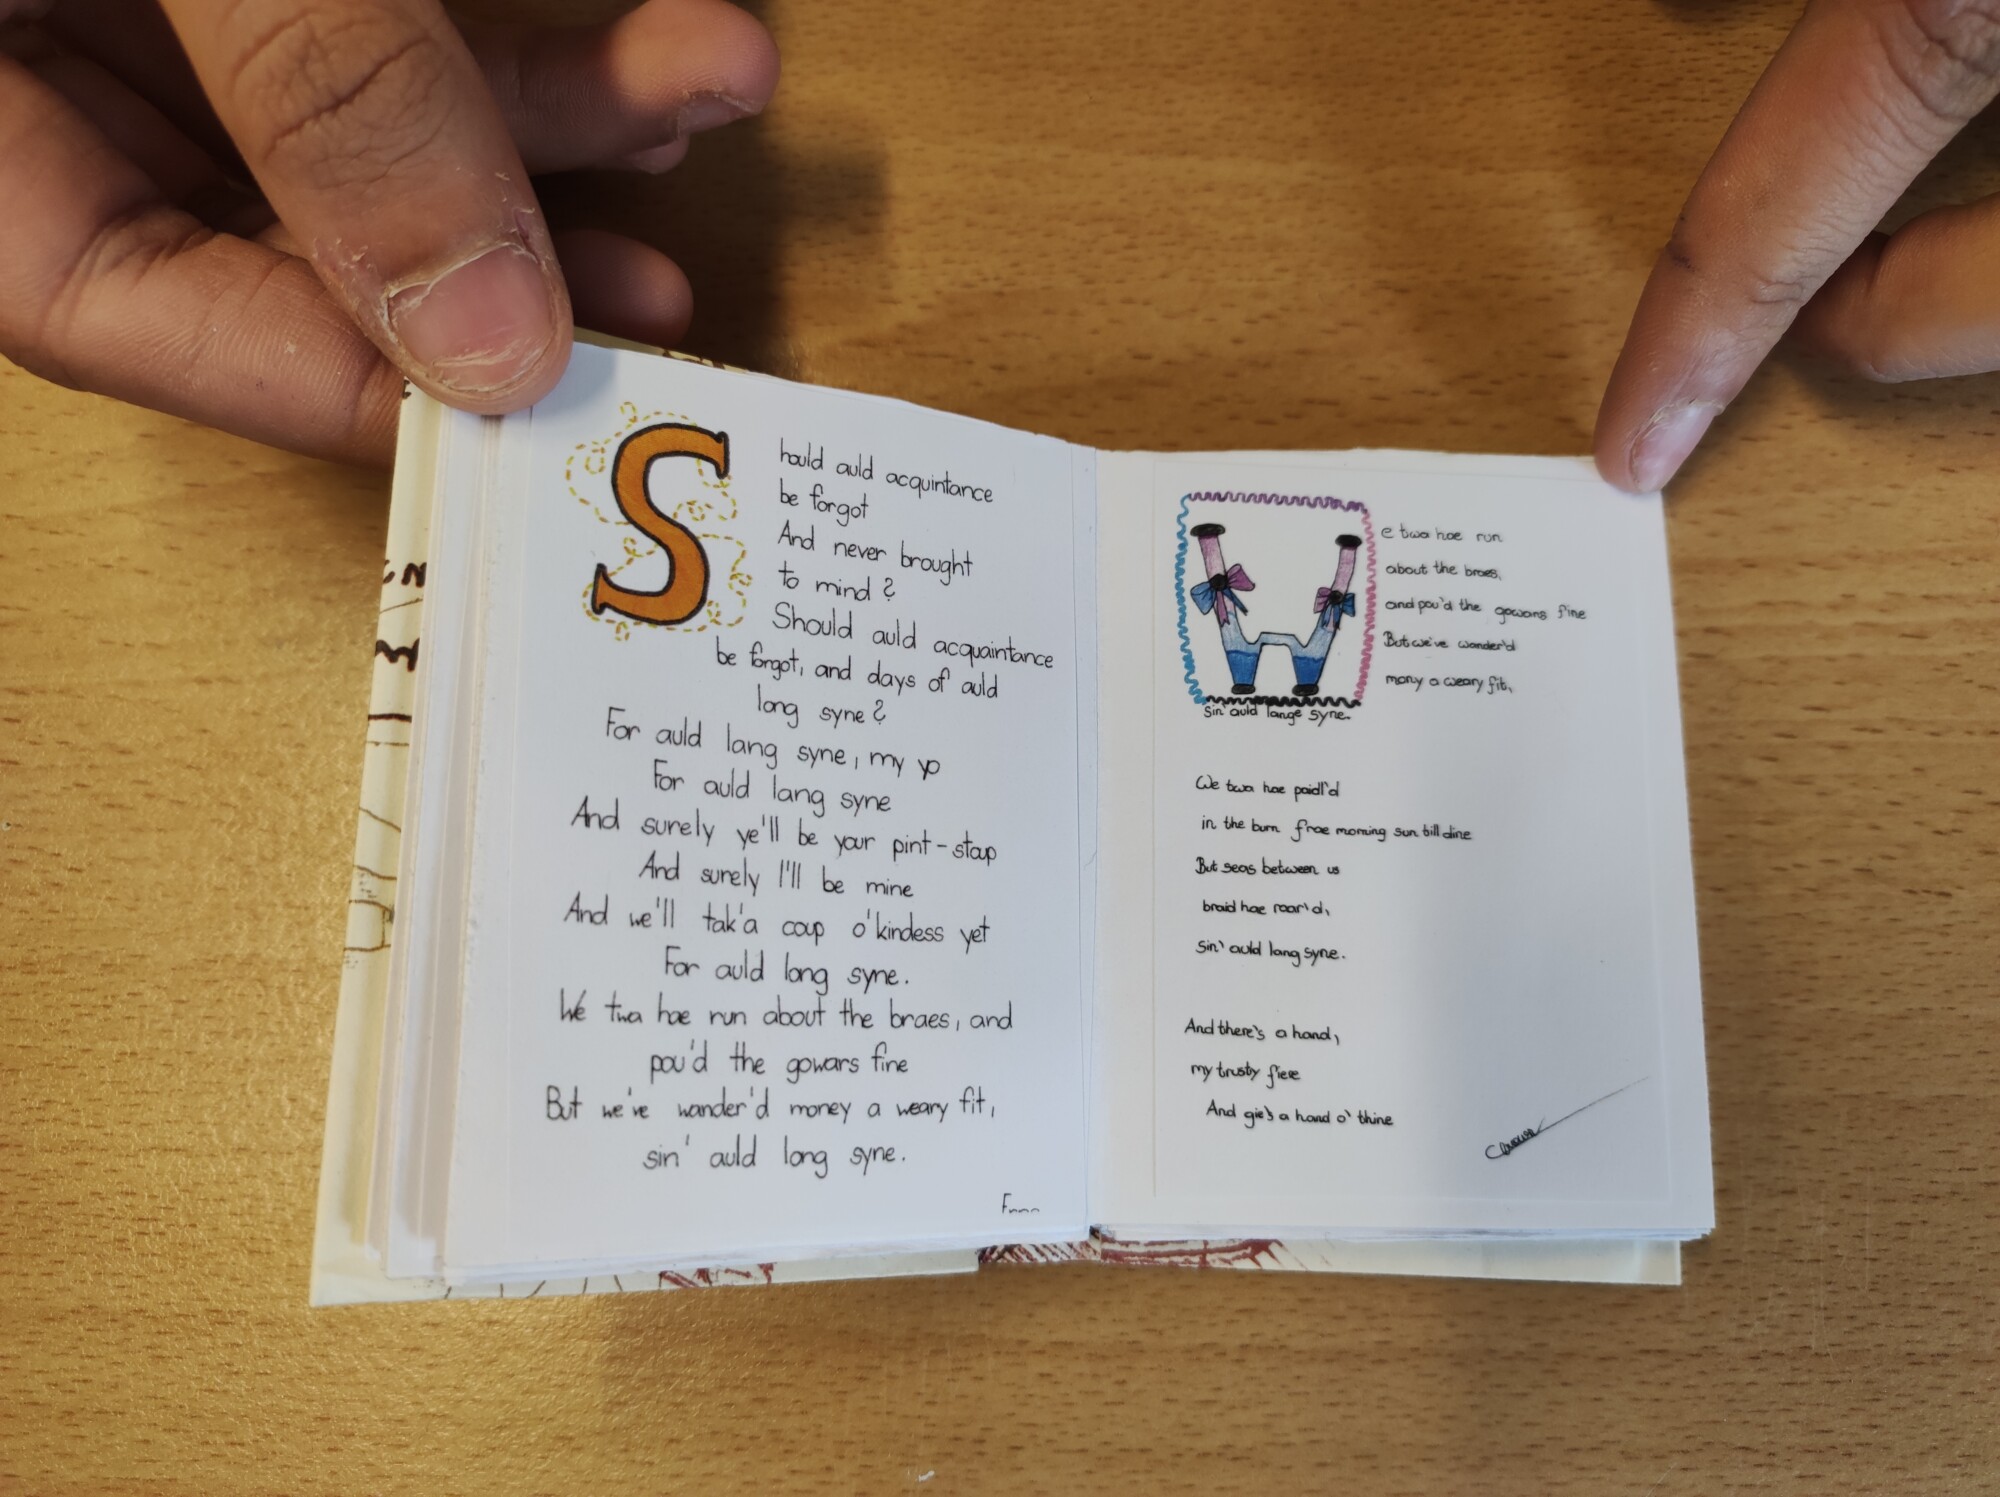 Should auld acquintance
be forgot
And never brought
to mind?
Should auld acquaintance
be forgot, and days of auld
long syne?
For auld lang syne, my yo
For auld lang syne
And surely ye'll be your pint-stap
And surely I'll be mine
And we'll tak'a coup o'kindess yet
For auld long syne.
We twa hae run about the braes, and
pou'd the gowars fine
But we've wander'd money a weary fit,
sin' auld long syne.
We twa hae run
about the braes,
and pou'd the gowans fine
But we've wander'd
mony a weary fit,
Sin' auld lange syne.
We twa hae paidl'd
in the burn frae morning sun till dine
But seas between us
braid hae roar'd,
Sin' auld lang syne.
And there's a hand,
my trusty fiere
And gie's a hand o' thine